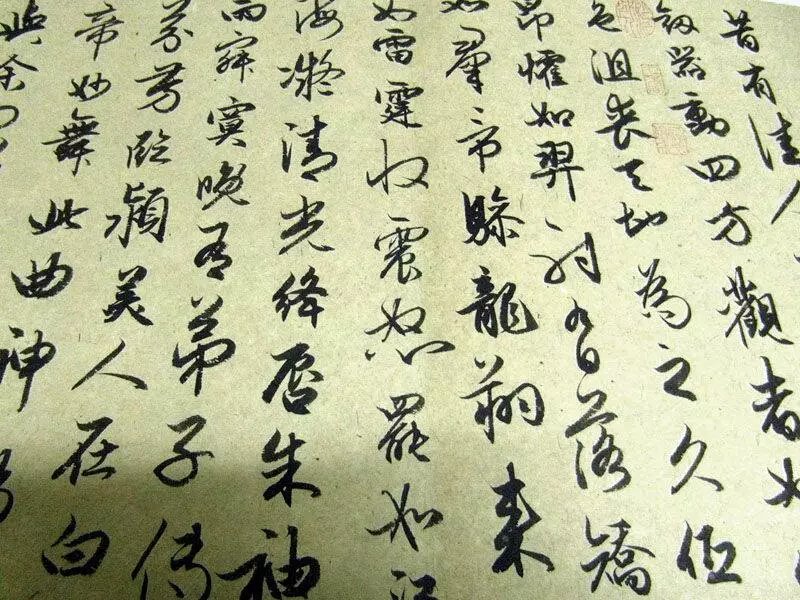 昔有佳人
劍器動四方觀者如
色沮喪天地為之久低
昂㸌如羿射九日落矯
如羣帝驂龍翔來
如雷霆收震怒罷如江
海凝清光絳唇朱袖
兩寂寞晚有弟子傳
芬芳臨潁美人在白
帝妙舞此曲神
與余問